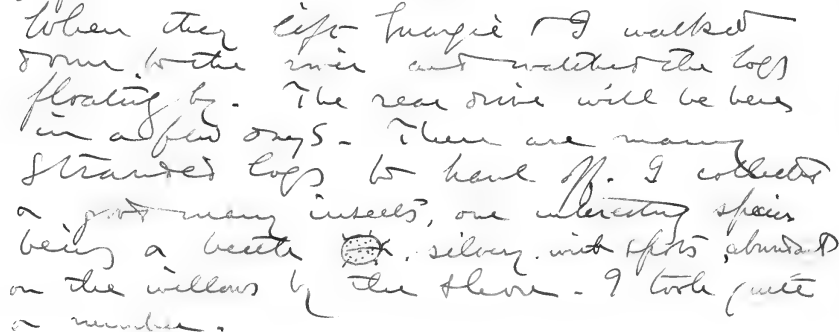 When they left Margie & I walked
down to the river and watched the logs
floating by. The rear drive will be here
in a few days. There are many
stranded logs to haul off. I collected
a good many insects, one interesting species
being a beetle silvery with spots, abundant
on the willows by the shore. I took quite
a number.